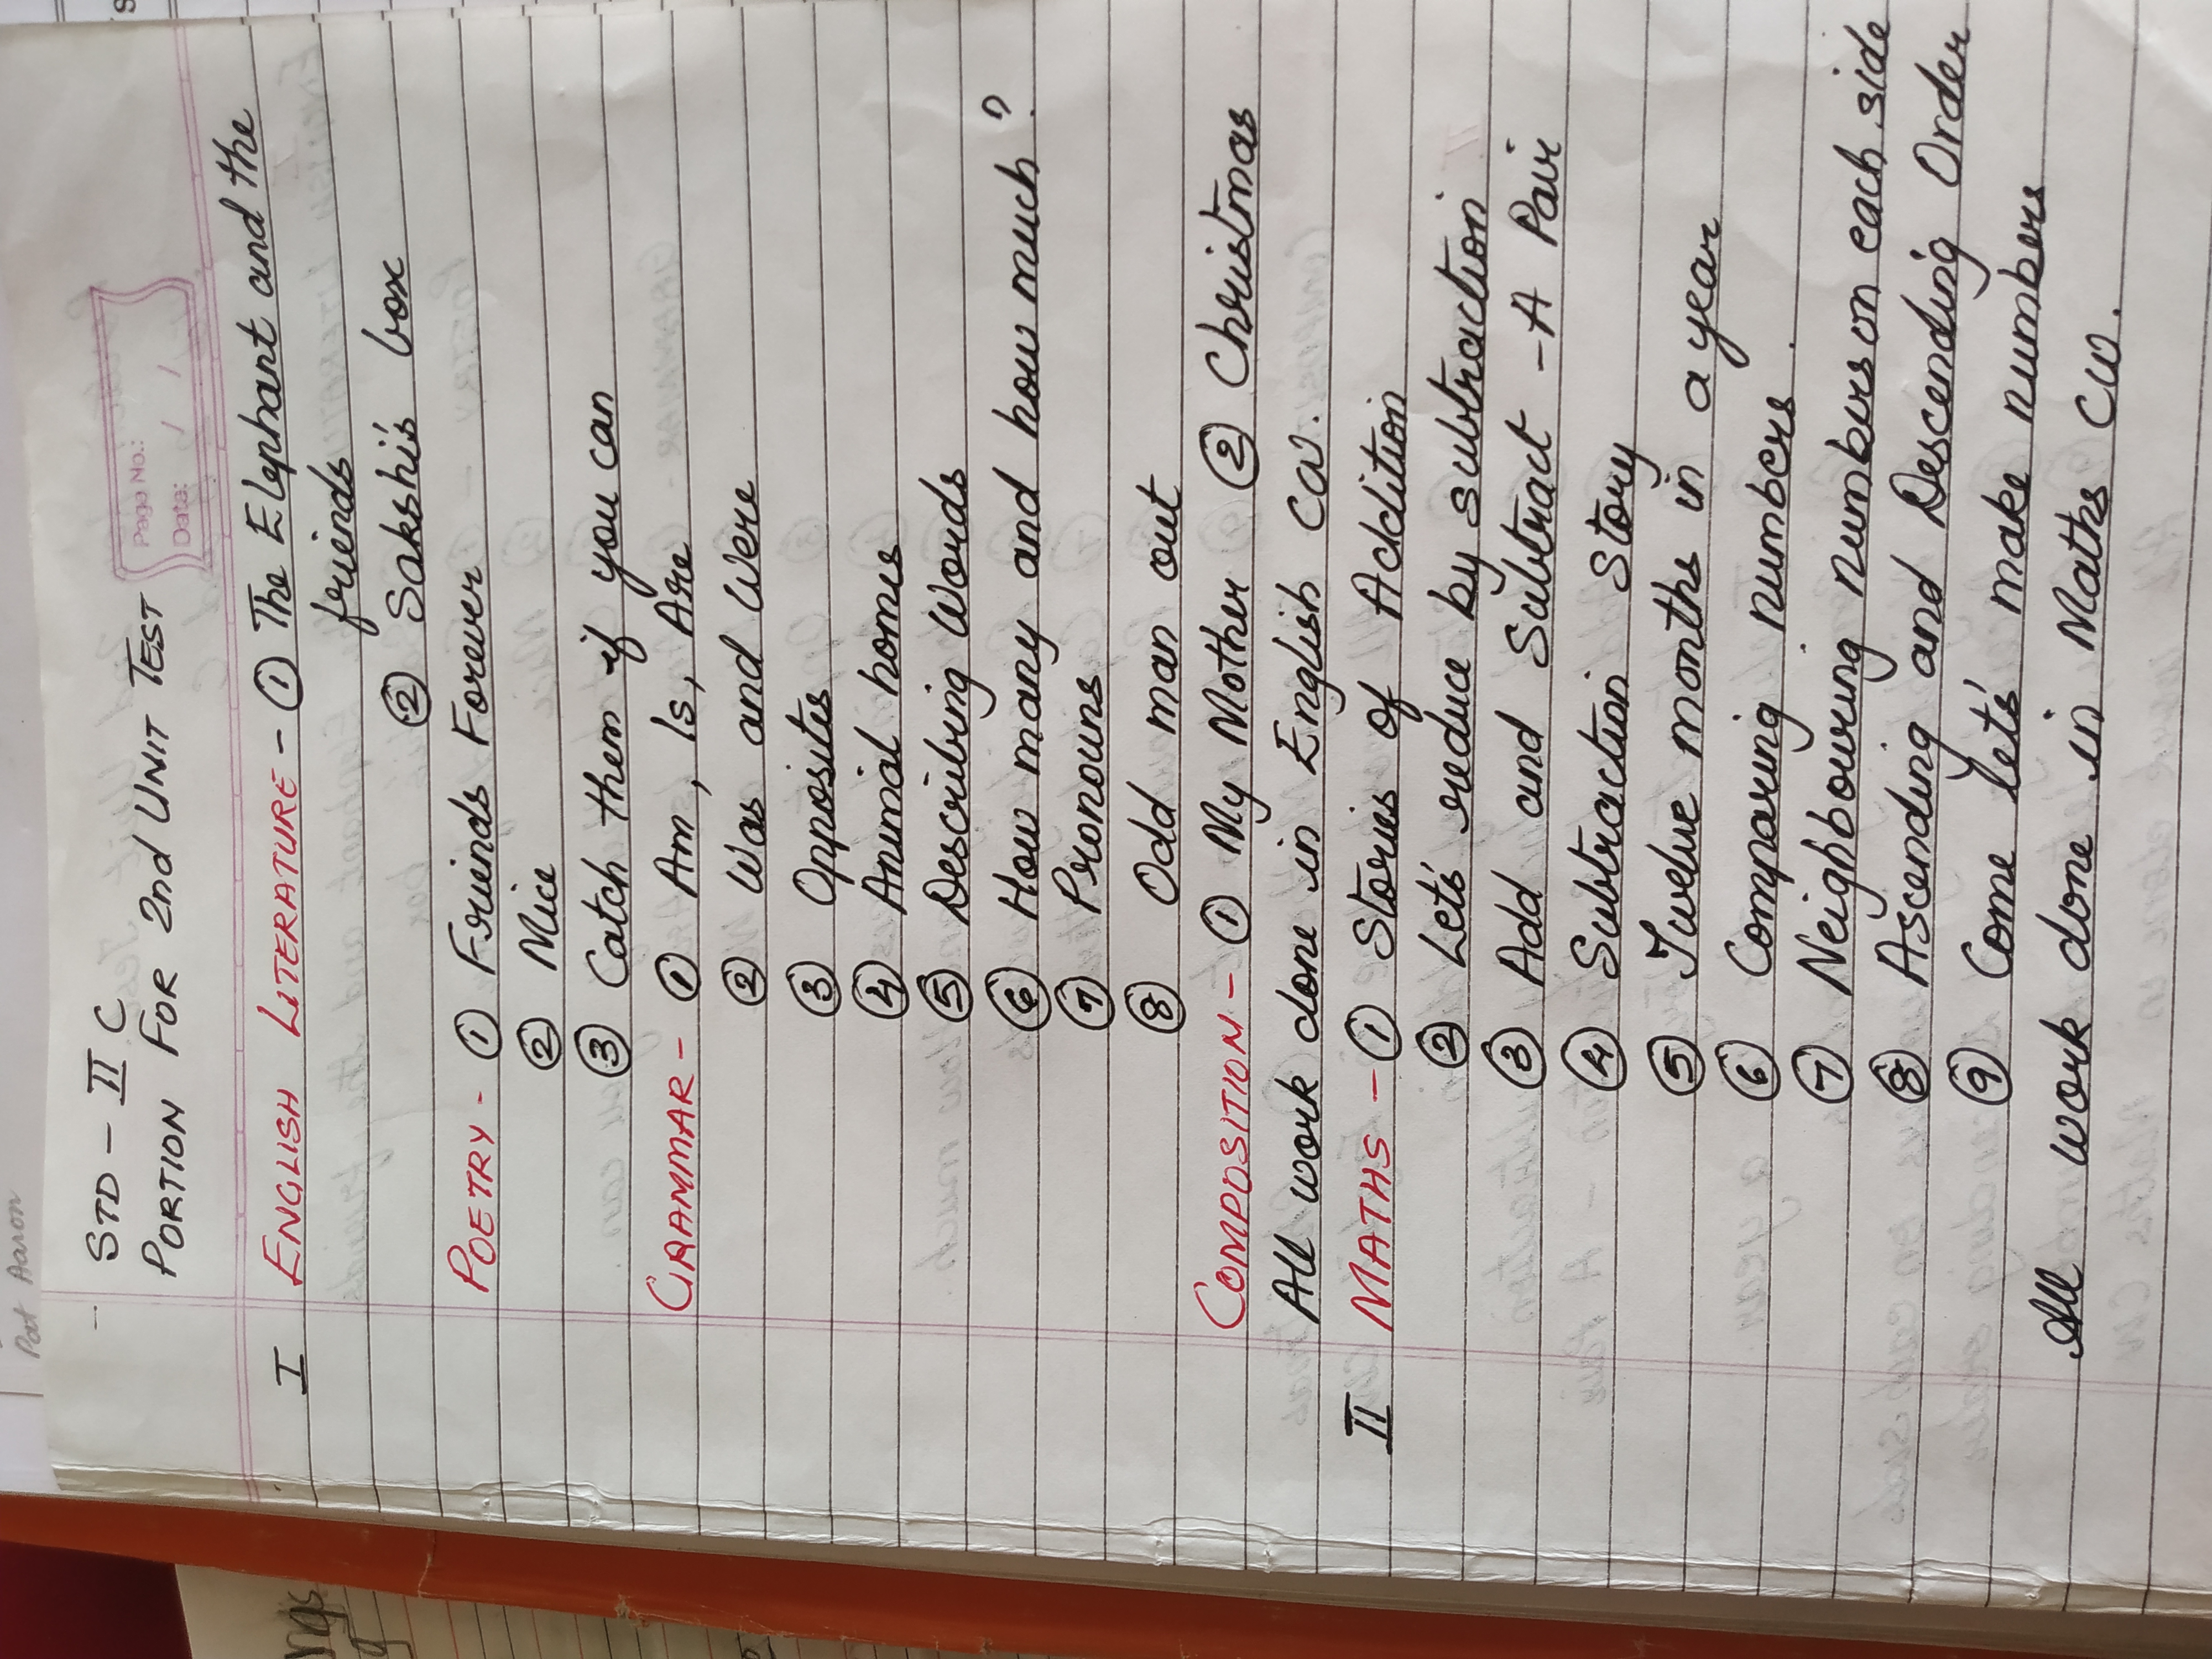 Pat Aaron
STD - II C
PORTION FOR 2nd UNIT TEST
Page No.:
Date: / /
I ENGLISH LITERATURE - ① The Elephant and the
friends
② Sakshi's box
POETRY - ① Friends Forever
② Mice
③ Catch them if you can
GRAMMAR - ① Am, Is, Are
② Was and Were
③ Opposites
④ Animal homes
⑤ Describing Words
⑥ How many and how much?
⑦ Pronouns
⑧ Odd man out
COMPOSITION - ① My Mother ② Christmas
All work done in English CW.
II MATHS - ① Stories of Addition
② Let's reduce by subtraction
③ Add and Subtract - A Pair
④ Subtraction Story
⑤ Twelve months in a year
⑥ Comparing numbers.
⑦ Neighbouring numbers on each side
⑧ Ascending and Descending Order
⑨ Come let's make numbers
All work done in Maths CW.